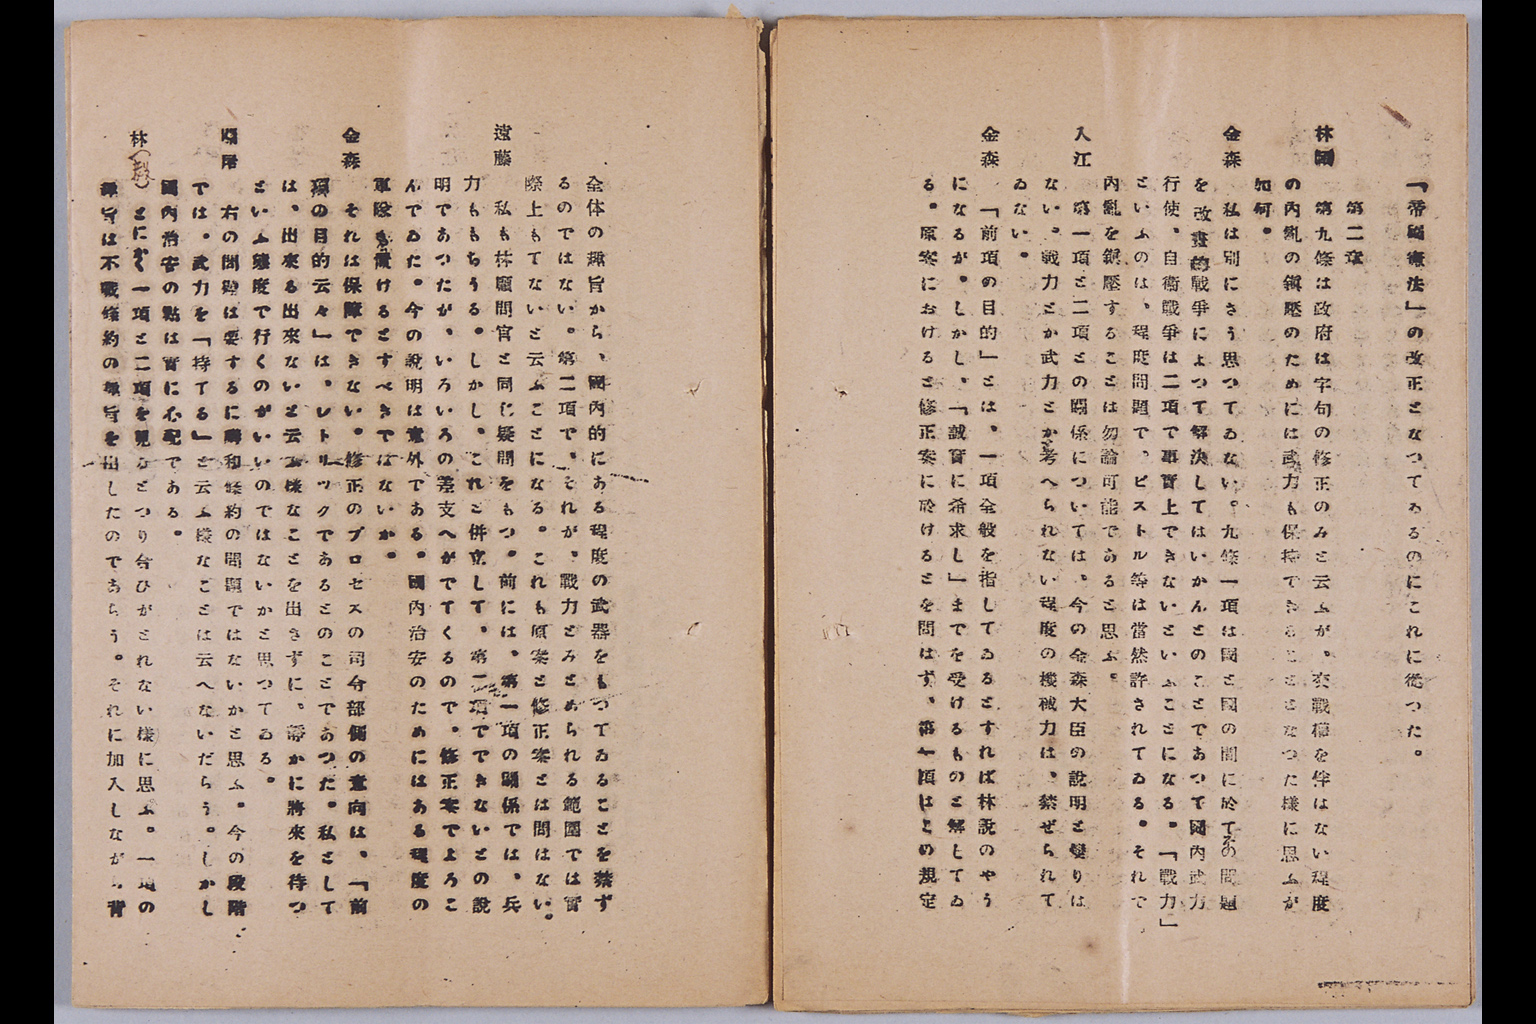 「帝國憲法」の改正となつてゐるのにこれに從つた。
第二章
林國 第九條は政府は字句の修正のみと云ふが、交戰權を伴はない程度
の内亂の鎭壓のためには武力も保持できることとなつた樣に思ふが
如何。
金森 私は別にさう思つてゐない。九條一項は國と國の間に於ての問題
を改畫的戰爭によつて解決してはいかんとのことであつて國内武力
行使、自衞戰爭は二項で事實上できないといふことになる。「戰力」
といふのは、程度問題で、ピストル等は當然許されてゐる。それで
内亂を鎭壓することは勿論可能であると思ふ。
入江 第一項と二項との關係については、今の金森大臣の説明と變りは
ない。戰力とか武力とか考へられない程度の機械力は、禁ぜられて
ゐない。
金森 「前項の目的」とは、一項全般を指してゐるとすれば林説のやう
になるが、しかし、「誠實に希求し」までを受けるものと解してゐ
る。原案におけると修正案に於けるとを問はず、第一項はこの規定
全体の趣旨から、國内的にある程度の武器をもつてゐることを禁ず
るのではない。第二項で、それが、戰力とみとめられる範圍では實
際上もてないと云ふことになる。これも原案と修正案とは問はない。
遠藤 私も林顧問官と同じ疑問をもつ。前には、第一項の關係では、兵
力ももちうる。しかし、これと併立して、第二項でできないとの説
明であつたが、いろいろの差支へがでてくるので、修正案でよろこ
んでゐた。今の説明は意外である。國内治安のためにはある程度の
軍設も置けるとすべきではないか。
金森 それは保障できない。修正のプロセスの司令部側の意向は、「前
項の目的云々」は、レトリツクであるとのことであつた。私として
は、出來る出來ないと云ふ樣なことを出さずに、靜かに將來を待つ
といふ態度で行くのがいいのではないかと思つてゐる。
關屋 右の問題は要するに講和條約の問題ではないかと思ふ。今の段階
では、武力を「持てる」と云ふ樣なことは云へないだらう。しかし
國内治安の點は實に心配である。
林(毅) とにかく一項と二項を見るとつり合ひがとれない樣に思ふ。一項の
趣旨は不戰條約の趣旨を出したのであらう。それに加入しながら背